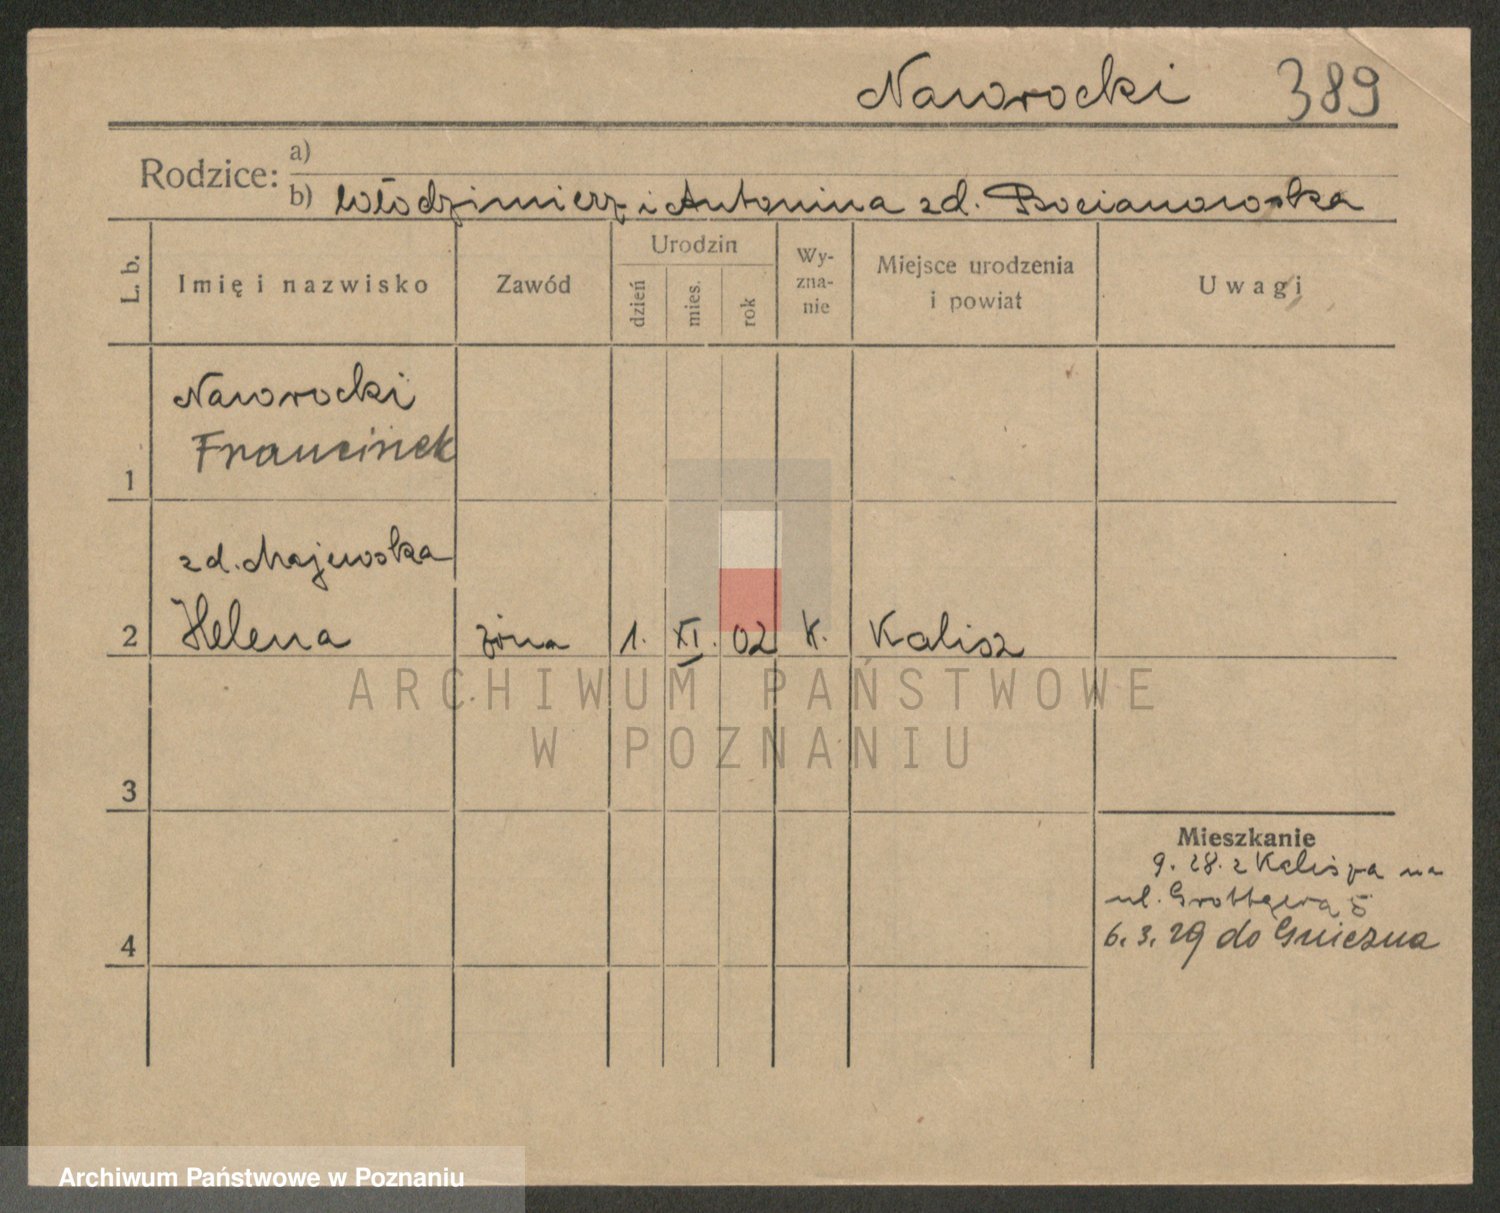 Nawrocki 389
Rodzice: a)
b) Włodzimierz i Antonina zd. Bocianowska
L. b. Imię i nazwisko Zawód Urodzin dzień mies. rok Wy-zna-nie Miejsce urodzenia i powiat Uwagi
Nawrocki
Franciszek
1
zd. Majewska
2 Helena żona 1. XI. 02 K. Kalisz
ARCHIWUM PAŃSTWOWE
W POZNANIU
3
Mieszkanie
9. 28. z Kalisza na
ul. Grottgera 5
4 6. 3. 29 do Gniezna
Archiwum Państwowe w Poznaniu